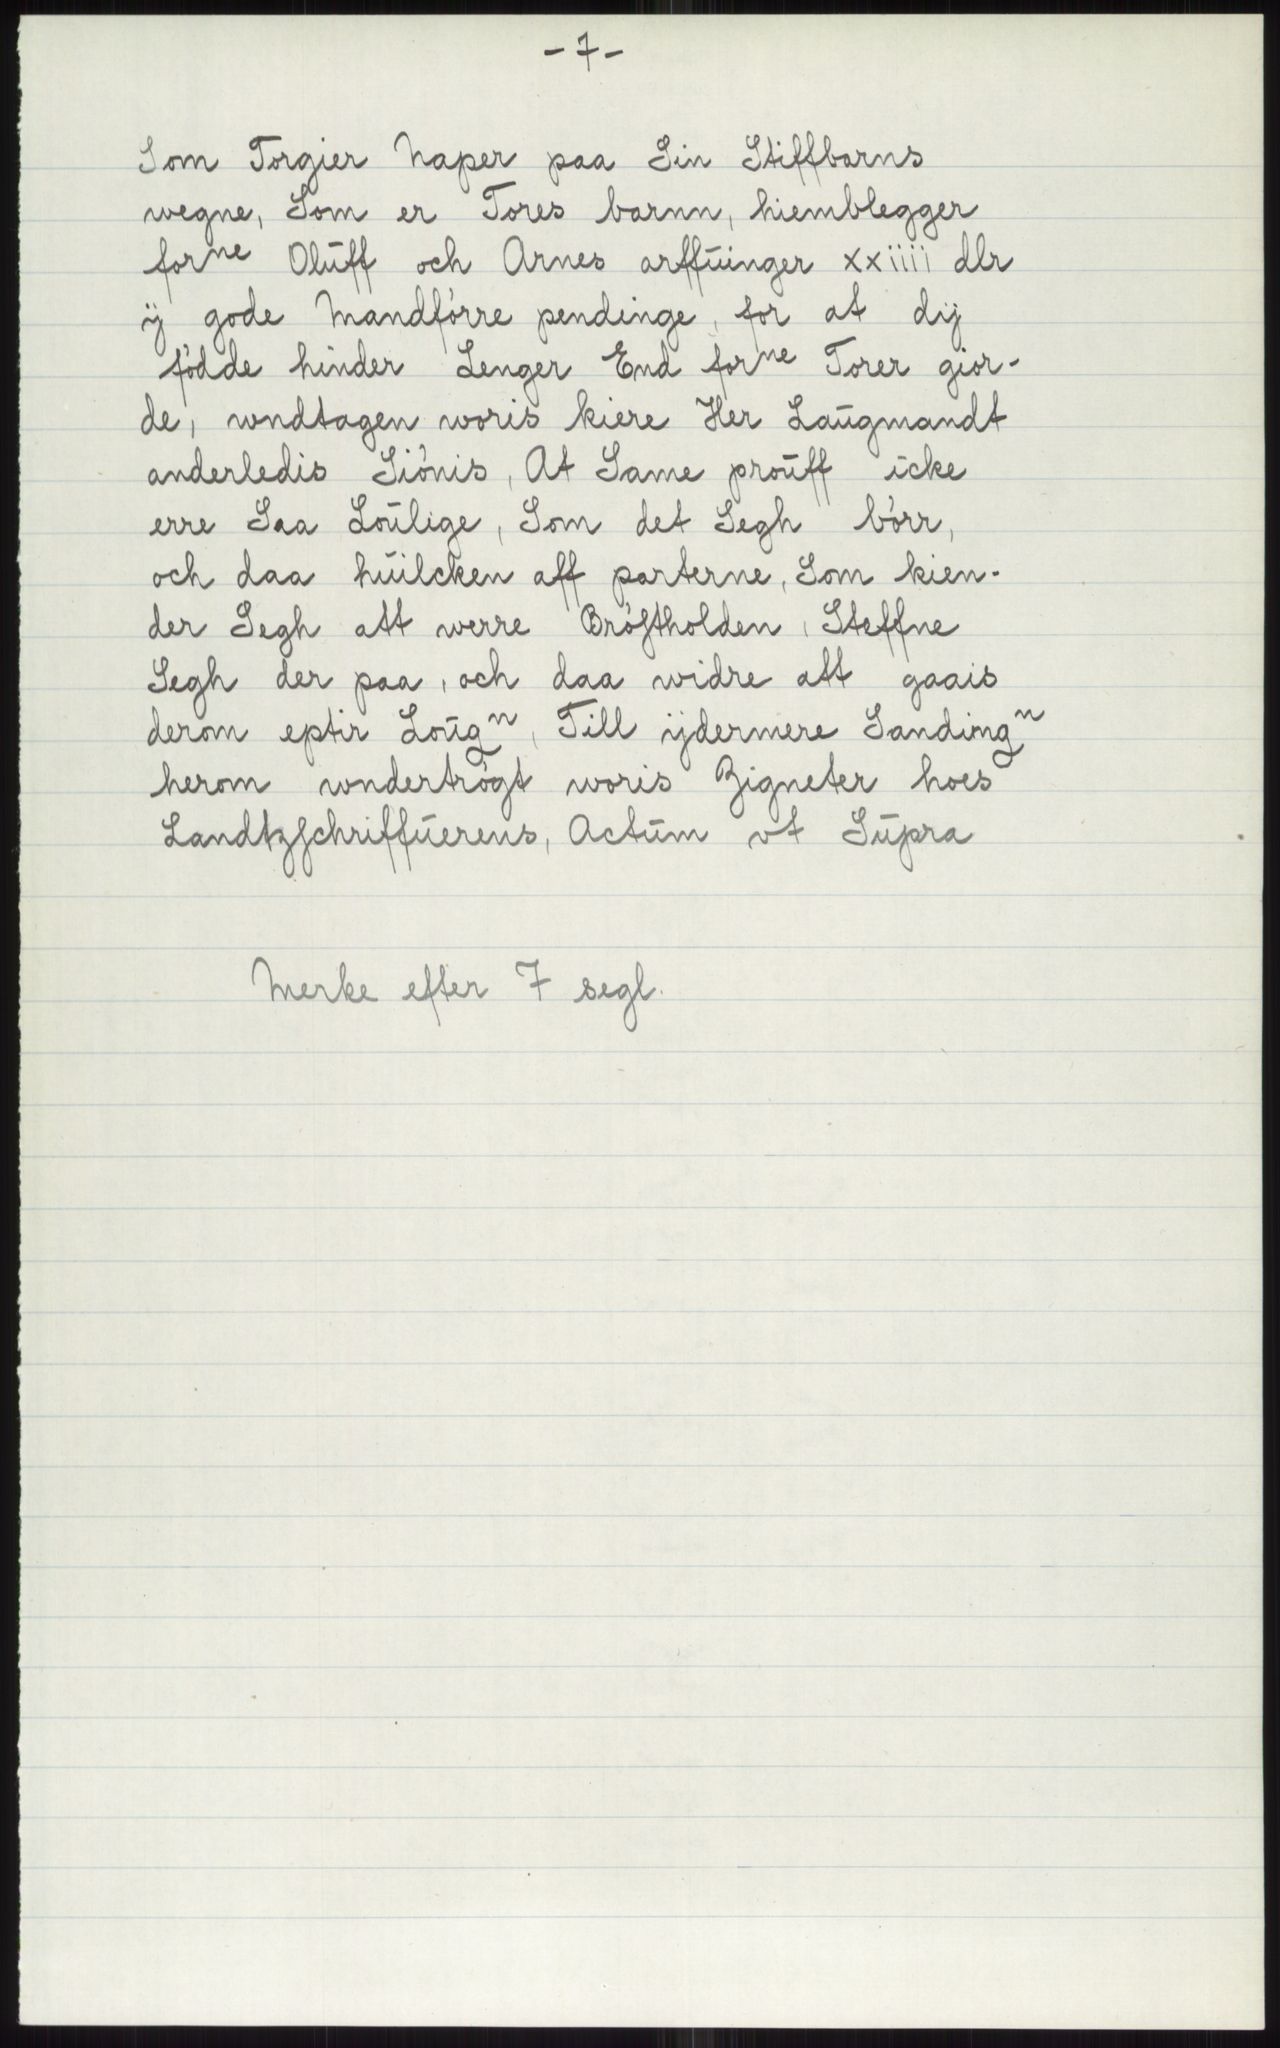 - 7 -
Som Torgier Naper paa Sin Stiffbarns
wegne, Som er Tores barnn, hiemblegger
forne Olūff och Arnes arffūinger xxiiii dlr
ÿ gode Mandførre pendinge, for at dij
fødde hinder Lenger End forne Torer gior-
de, wndtagen woris kiere Her Laūgmandt
anderledis Siønis, At Same proūff icke
erre Saa Loūlige, Som det Segh børr,
och daa hūilcken aff parterne, Som kien-
der Segh att werre Brøstholden, Steffne
Segh der paa, och daa widre att gaais
derom eptir Loūgn, Till ijdermere Sandingn
herom wndertrøgt woris Zigneter hoes
Landtzschriffūerens, Actūm vt Sūpra
Merke efter 7 segl.